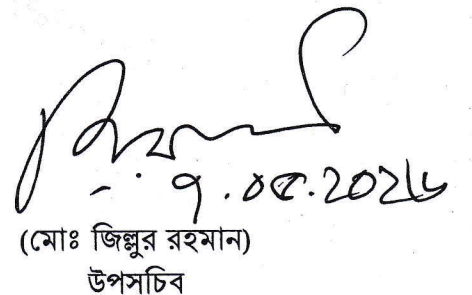 ৭.০৫.২০২৬
(মোঃ জিল্লুর রহমান)
উপসচিব